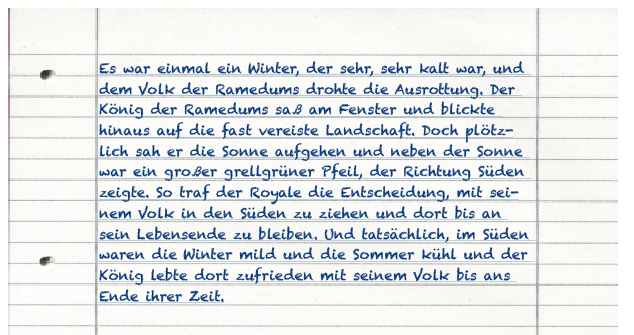 Es war einmal ein Winter, der sehr, sehr kalt war, und
dem Volk der Ramedums drohte die Ausrottung. Der
König der Ramedums saß am Fenster und blickte
hinaus auf die fast vereiste Landschaft. Doch plötz-
lich sah er die Sonne aufgehen und neben der Sonne
war ein großer grellgrüner Pfeil, der Richtung Süden
zeigte. So traf der Royale die Entscheidung, mit sei-
nem Volk in den Süden zu ziehen und dort bis an
sein Lebensende zu bleiben. Und tatsächlich, im Süden
waren die Winter mild und die Sommer kühl und der
König lebte dort zufrieden mit seinem Volk bis ans
Ende ihrer Zeit.